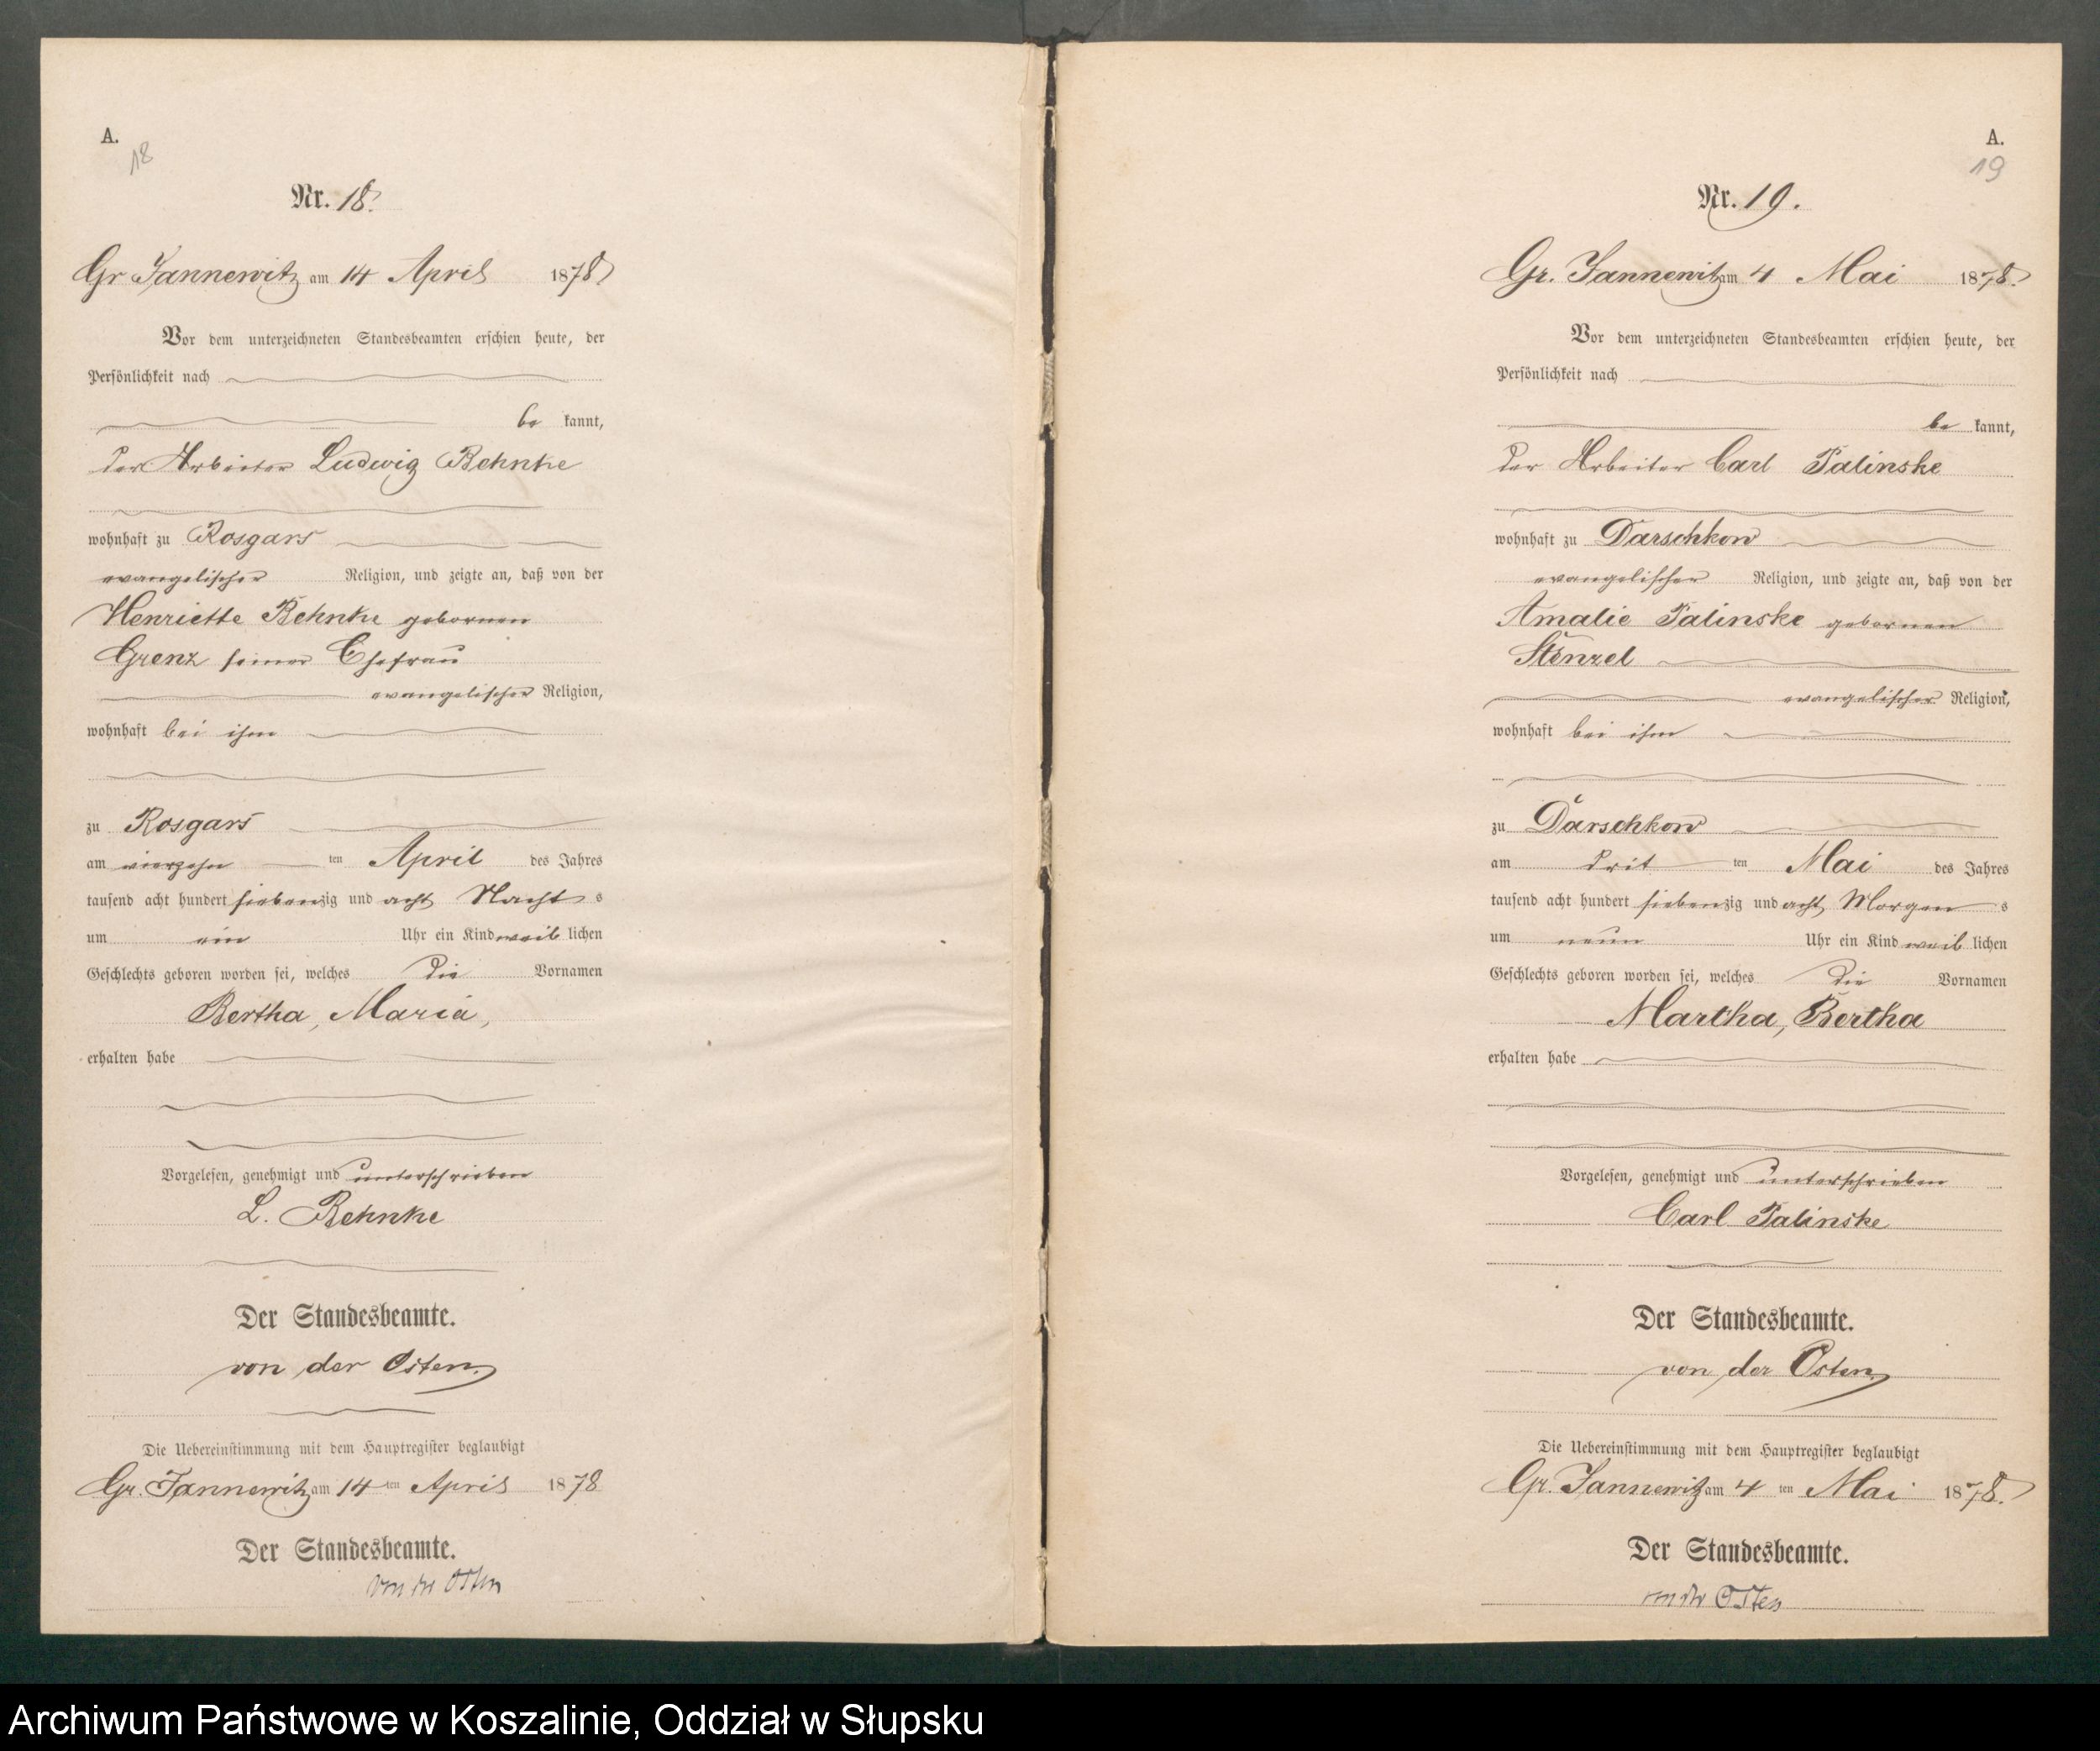 A.
18
Nr. 18.
Gr Jannewitz am 14 April 1878
Vor dem unterzeichneten Standesbeamten erschien heute, der
Persönlichkeit nach
be kannt,
der Arbeiter Ludwig Behnke
wohnhaft zu Rosgars
evangelischer Religion, und zeigte an, daß von der
Henriette Behnke gebornen
Grenz seiner Ehefrau
evangelischer Religion,
wohnhaft bei ihm
zu Rosgars
am vierzehn ten April des Jahres
tausend acht hundert siebenzig und acht Nacht s
um ein Uhr ein Kind weib lichen
Geschlechts geboren worden sei, welches die Vornamen
Bertha, Maria,
erhalten habe
Vorgelesen, genehmigt und unterschrieben
L. Behnke
Der Standesbeamte.
von der Osten.
Die Uebereinstimmung mit dem Hauptregister beglaubigt
Gr. Jannewitz am 14 ten April 1878
Der Standesbeamte.
von der Osten
A.
19
Nr. 19.
Gr. Jannewitz am 4 Mai 1878.
Vor dem unterzeichneten Standesbeamten erschien heute, der
Persönlichkeit nach
be kannt,
der Arbeiter Carl Palinske
wohnhaft zu Darschkow
evangelischer Religion, und zeigte an, daß von der
Amalie Palinske gebornen
Stenzel
evangelischer Religion,
wohnhaft bei ihm
zu Darschkow
am drit ten Mai des Jahres
tausend acht hundert siebenzig und acht Morgen s
um neun Uhr ein Kind weib lichen
Geschlechts geboren worden sei, welches die Vornamen
Martha, Bertha
erhalten habe
Vorgelesen, genehmigt und unterschrieben
Carl Palinske
Der Standesbeamte.
von der Osten.
Die Uebereinstimmung mit dem Hauptregister beglaubigt
Gr. Jannewitz am 4 ten Mai 1878.
Der Standesbeamte.
von der Osten
Archiwum Państwowe w Koszalinie, Oddział w Słupsku